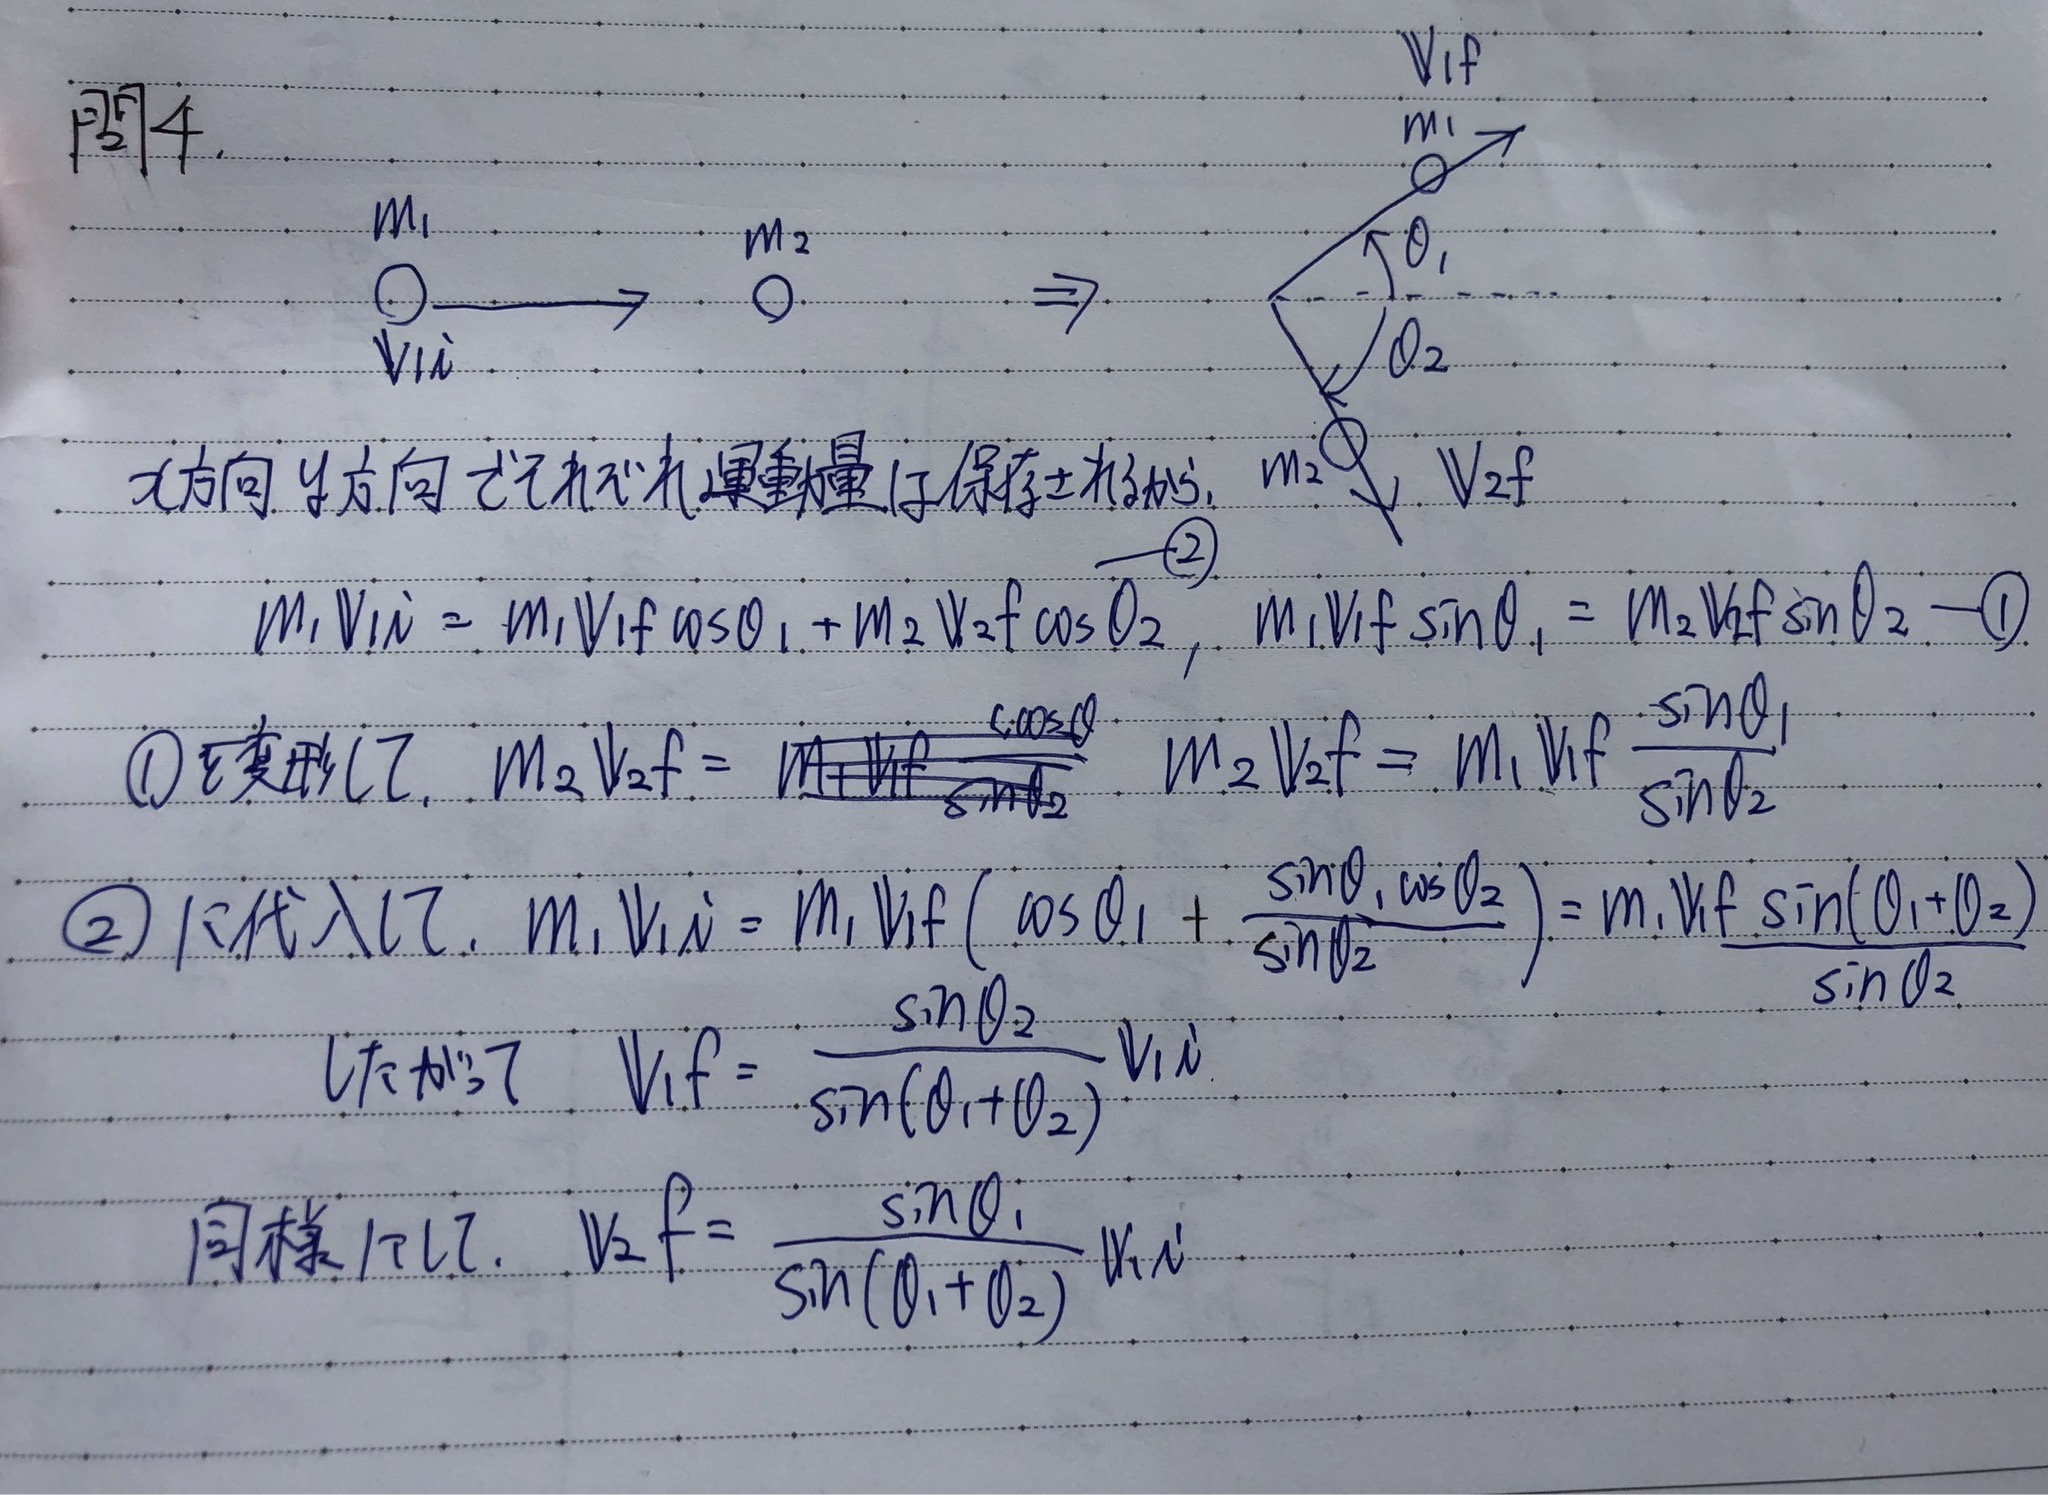 問4.
m₁ m₂ ⇒ V₁f m₁ θ₁
V₁i θ₂
x方向y方向でそれぞれ運動量は保存されるから、 m₂ V₂f
m₁V₁i = m₁V₁f cosθ₁ + m₂V₂f cosθ₂ —②, m₁V₁f sinθ₁ = m₂V₂f sinθ₂ —①
①を変形して、 m₂V₂f = m₂V₂f = m₁V₁f sinθ₁/sinθ₂
②に代入して、 m₁V₁i = m₁V₁f(cosθ₁ + sinθ₁cosθ₂/sinθ₂) = m₁V₁f sin(θ₁+θ₂)/sinθ₂
したがって V₁f = sinθ₂/sin(θ₁+θ₂) V₁i.
同様にして、 V₂f = sinθ₁/sin(θ₁+θ₂) V₁i